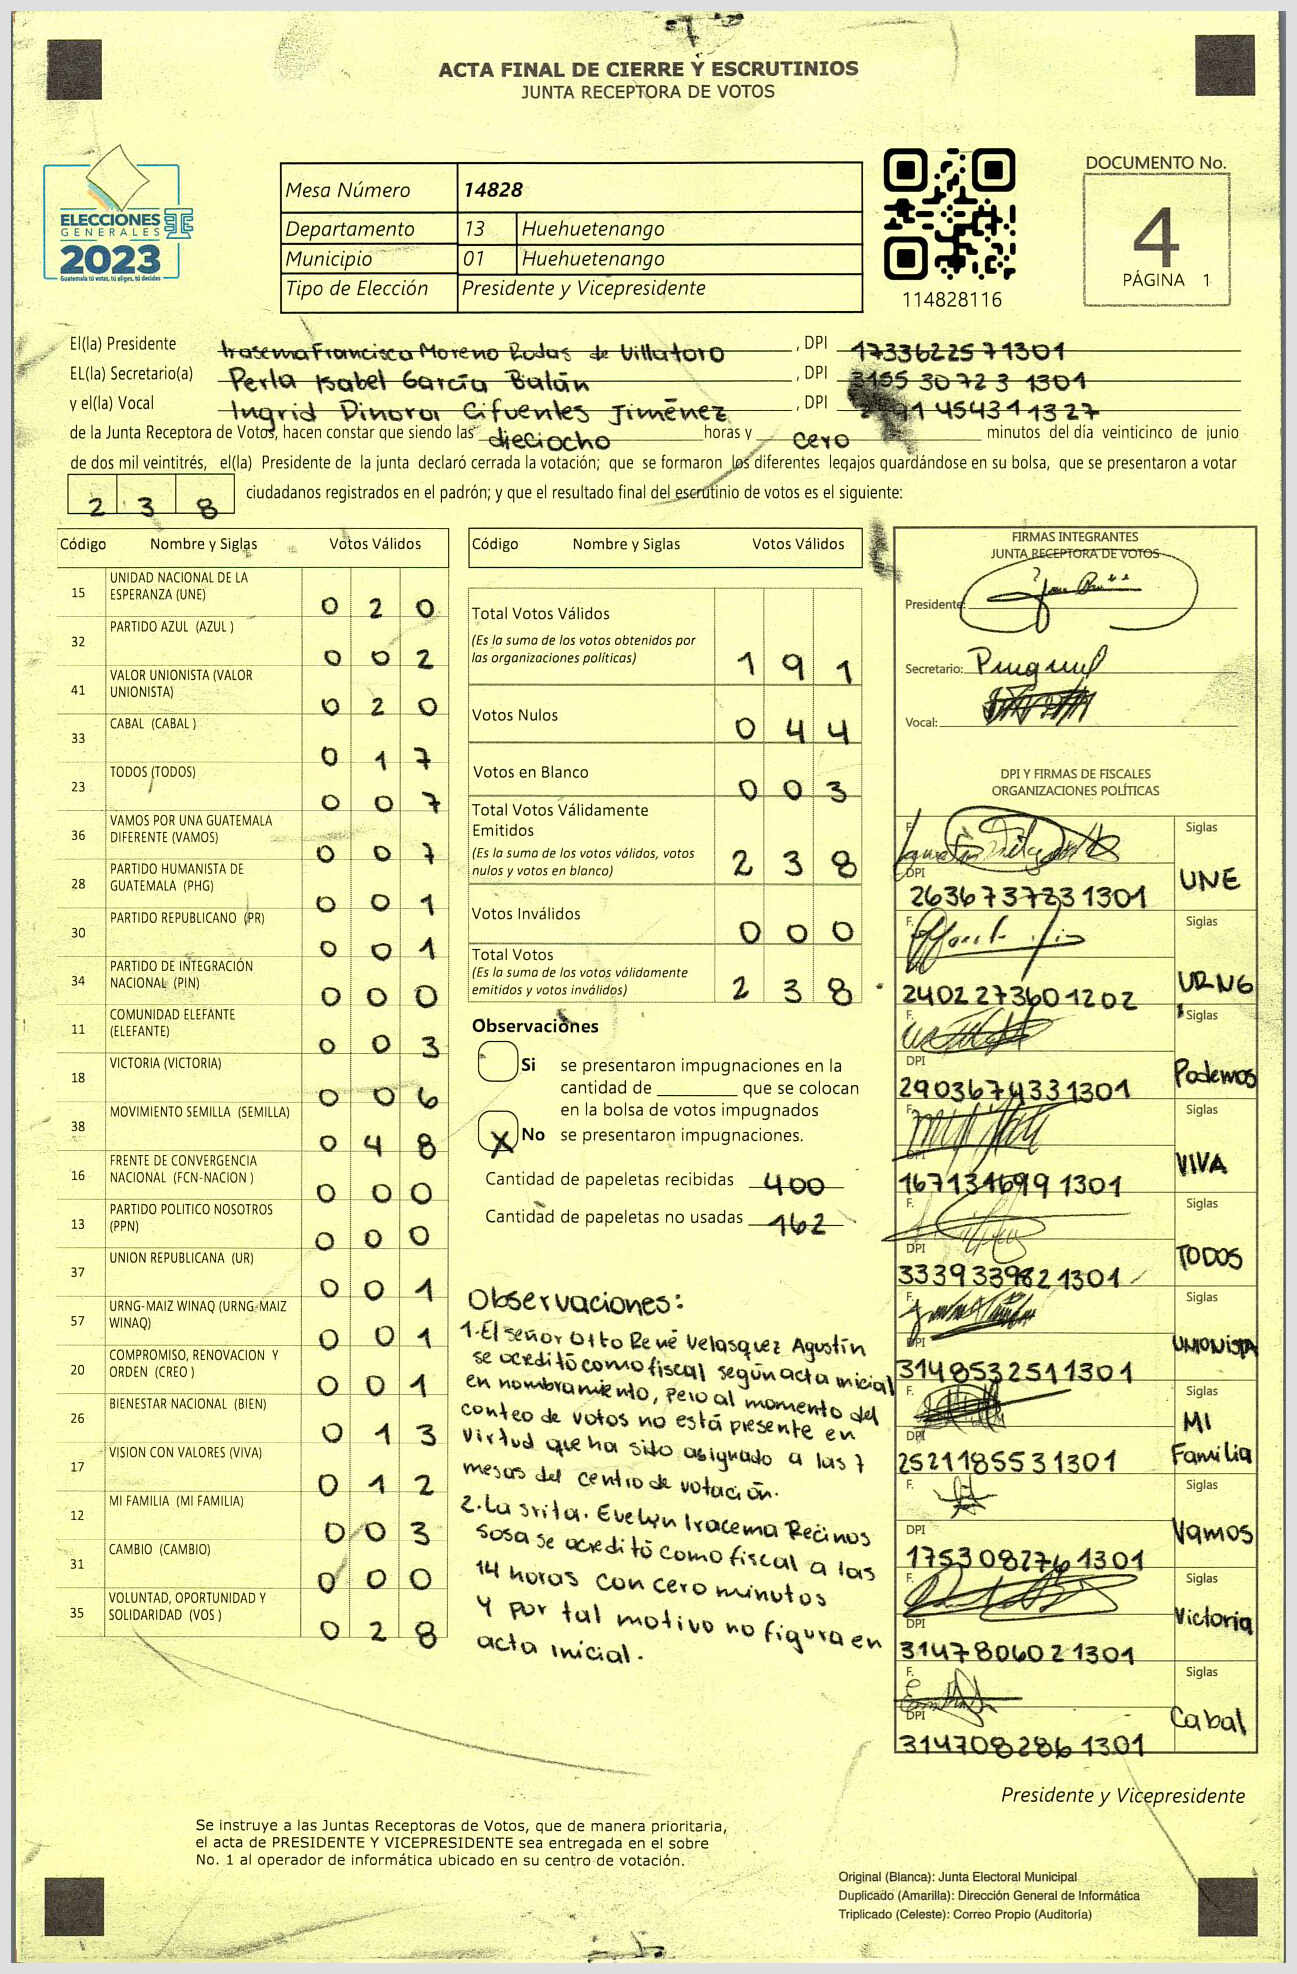 ACTA FINAL DE CIERRE Y ESCRUTINIOS
JUNTA RECEPTORA DE VOTOS
ELECCIONES
GENERALES
2023
Guatemala tú votas, tú eliges, tú decides
Mesa Número 14828
Departamento 13 Huehuetenango
Municipio 01 Huehuetenango
Tipo de Elección Presidente y Vicepresidente
114828116
DOCUMENTO No.
4
PÁGINA 1
El(la) Presidente Irasema Francisca Moreno Rodas de Villatoro, DPI 1733622571301
EL(la) Secretario(a) Perla Isabel García Balán, DPI 3155 30723 1301
y el(la) Vocal Ingrid Dinora Cifuentes Jiménez, DPI 45431 1327
de la Junta Receptora de Votos, hacen constar que siendo las dieciocho horas y cero minutos del día veinticinco de junio
de dos mil veintitrés, el(la) Presidente de la junta declaró cerrada la votación; que se formaron los diferentes legajos guardándose en su bolsa, que se presentaron a votar
2 3 8 ciudadanos registrados en el padrón; y que el resultado final del escrutinio de votos es el siguiente:
Código Nombre y Siglas Votos Válidos
15 UNIDAD NACIONAL DE LA ESPERANZA (UNE) 0 2 0
32 PARTIDO AZUL (AZUL ) 0 0 2
41 VALOR UNIONISTA (VALOR UNIONISTA) 0 2 0
33 CABAL (CABAL ) 0 1 7
23 TODOS (TODOS) 0 0 7
36 VAMOS POR UNA GUATEMALA DIFERENTE (VAMOS) 0 0 7
28 PARTIDO HUMANISTA DE GUATEMALA (PHG) 0 0 1
30 PARTIDO REPUBLICANO (PR) 0 0 1
34 PARTIDO DE INTEGRACIÓN NACIONAL (PIN) 0 0 0
11 COMUNIDAD ELEFANTE (ELEFANTE) 0 0 3
18 VICTORIA (VICTORIA) 0 0 6
38 MOVIMIENTO SEMILLA (SEMILLA) 0 4 8
16 FRENTE DE CONVERGENCIA NACIONAL (FCN-NACION ) 0 0 0
13 PARTIDO POLITICO NOSOTROS (PPN) 0 0 0
37 UNION REPUBLICANA (UR) 0 0 1
57 URNG-MAIZ WINAQ (URNG-MAIZ WINAQ) 0 0 1
20 COMPROMISO, RENOVACION Y ORDEN (CREO ) 0 0 1
26 BIENESTAR NACIONAL (BIEN) 0 1 3
17 VISION CON VALORES (VIVA) 0 1 2
12 MI FAMILIA (MI FAMILIA) 0 0 3
31 CAMBIO (CAMBIO) 0 0 0
35 VOLUNTAD, OPORTUNIDAD Y SOLIDARIDAD (VOS ) 0 2 8
Código Nombre y Siglas Votos Válidos
Total Votos Válidos
(Es la suma de los votos obtenidos por
las organizaciones políticas) 1 9 1
Votos Nulos 0 4 4
Votos en Blanco 0 0 3
Total Votos Válidamente
Emitidos
(Es la suma de los votos válidos, votos
nulos y votos en blanco) 2 3 8
Votos Inválidos 0 0 0
Total Votos
(Es la suma de los votos válidamente
emitidos y votos inválidos) 2 3 8
Observaciones
Si se presentaron impugnaciones en la
cantidad de ________ que se colocan
en la bolsa de votos impugnados
X No se presentaron impugnaciones.
Cantidad de papeletas recibidas 400
Cantidad de papeletas no usadas 162
Observaciones:
1. El señor Otto René Velasquez Agustín
se acreditó como fiscal según acta inicial
en nombramiento, pero al momento del
conteo de votos no está presente en
virtud que ha sido asignado a las 7
mesas del centro de votación.
2. La srita. Evelyn Iracema Recinos
Sosa se acreditó como fiscal a las
14 horas con cero minutos
y por tal motivo no figura en
acta inicial.
FIRMAS INTEGRANTES
JUNTA RECEPTORA DE VOTOS
Presidente:
Secretario:
Vocal:
DPI Y FIRMAS DE FISCALES
ORGANIZACIONES POLÍTICAS
F. Siglas
DPI 2636737231301 UNE
F. Siglas
2402273601202 URNG
F. Siglas
DPI 2903674331301 Podemos
F. Siglas
DPI 1671316991301 VIVA
F. Siglas
DPI 3339339821301 TODOS
F. Siglas
DPI 3148532511301 UNIONISTA
F. Siglas
DPI 2521185531301 MI Familia
F. Siglas
DPI 1753082761301 Vamos
F. Siglas
DPI 3147806021301 Victoria
F. Siglas
DPI 3147082861301 Cabal
Presidente y Vicepresidente
Se instruye a las Juntas Receptoras de Votos, que de manera prioritaria,
el acta de PRESIDENTE Y VICEPRESIDENTE sea entregada en el sobre
No. 1 al operador de informática ubicado en su centro de votación.
Original (Blanca): Junta Electoral Municipal
Duplicado (Amarilla): Dirección General de Informática
Triplicado (Celeste): Correo Propio (Auditoría)